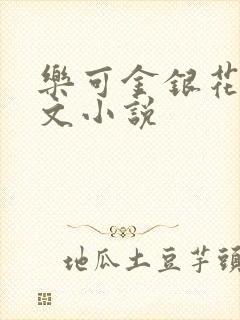 樂可金銀花
文小說
地瓜土豆芋頭